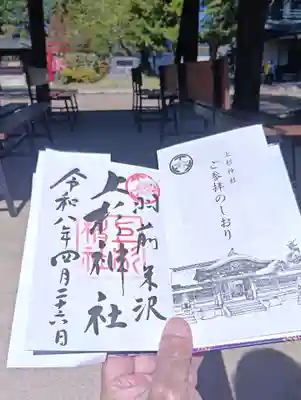 羽前米沢
上杉神社
令和八年四月二十六日
上杉神社
ご参拝のしおり